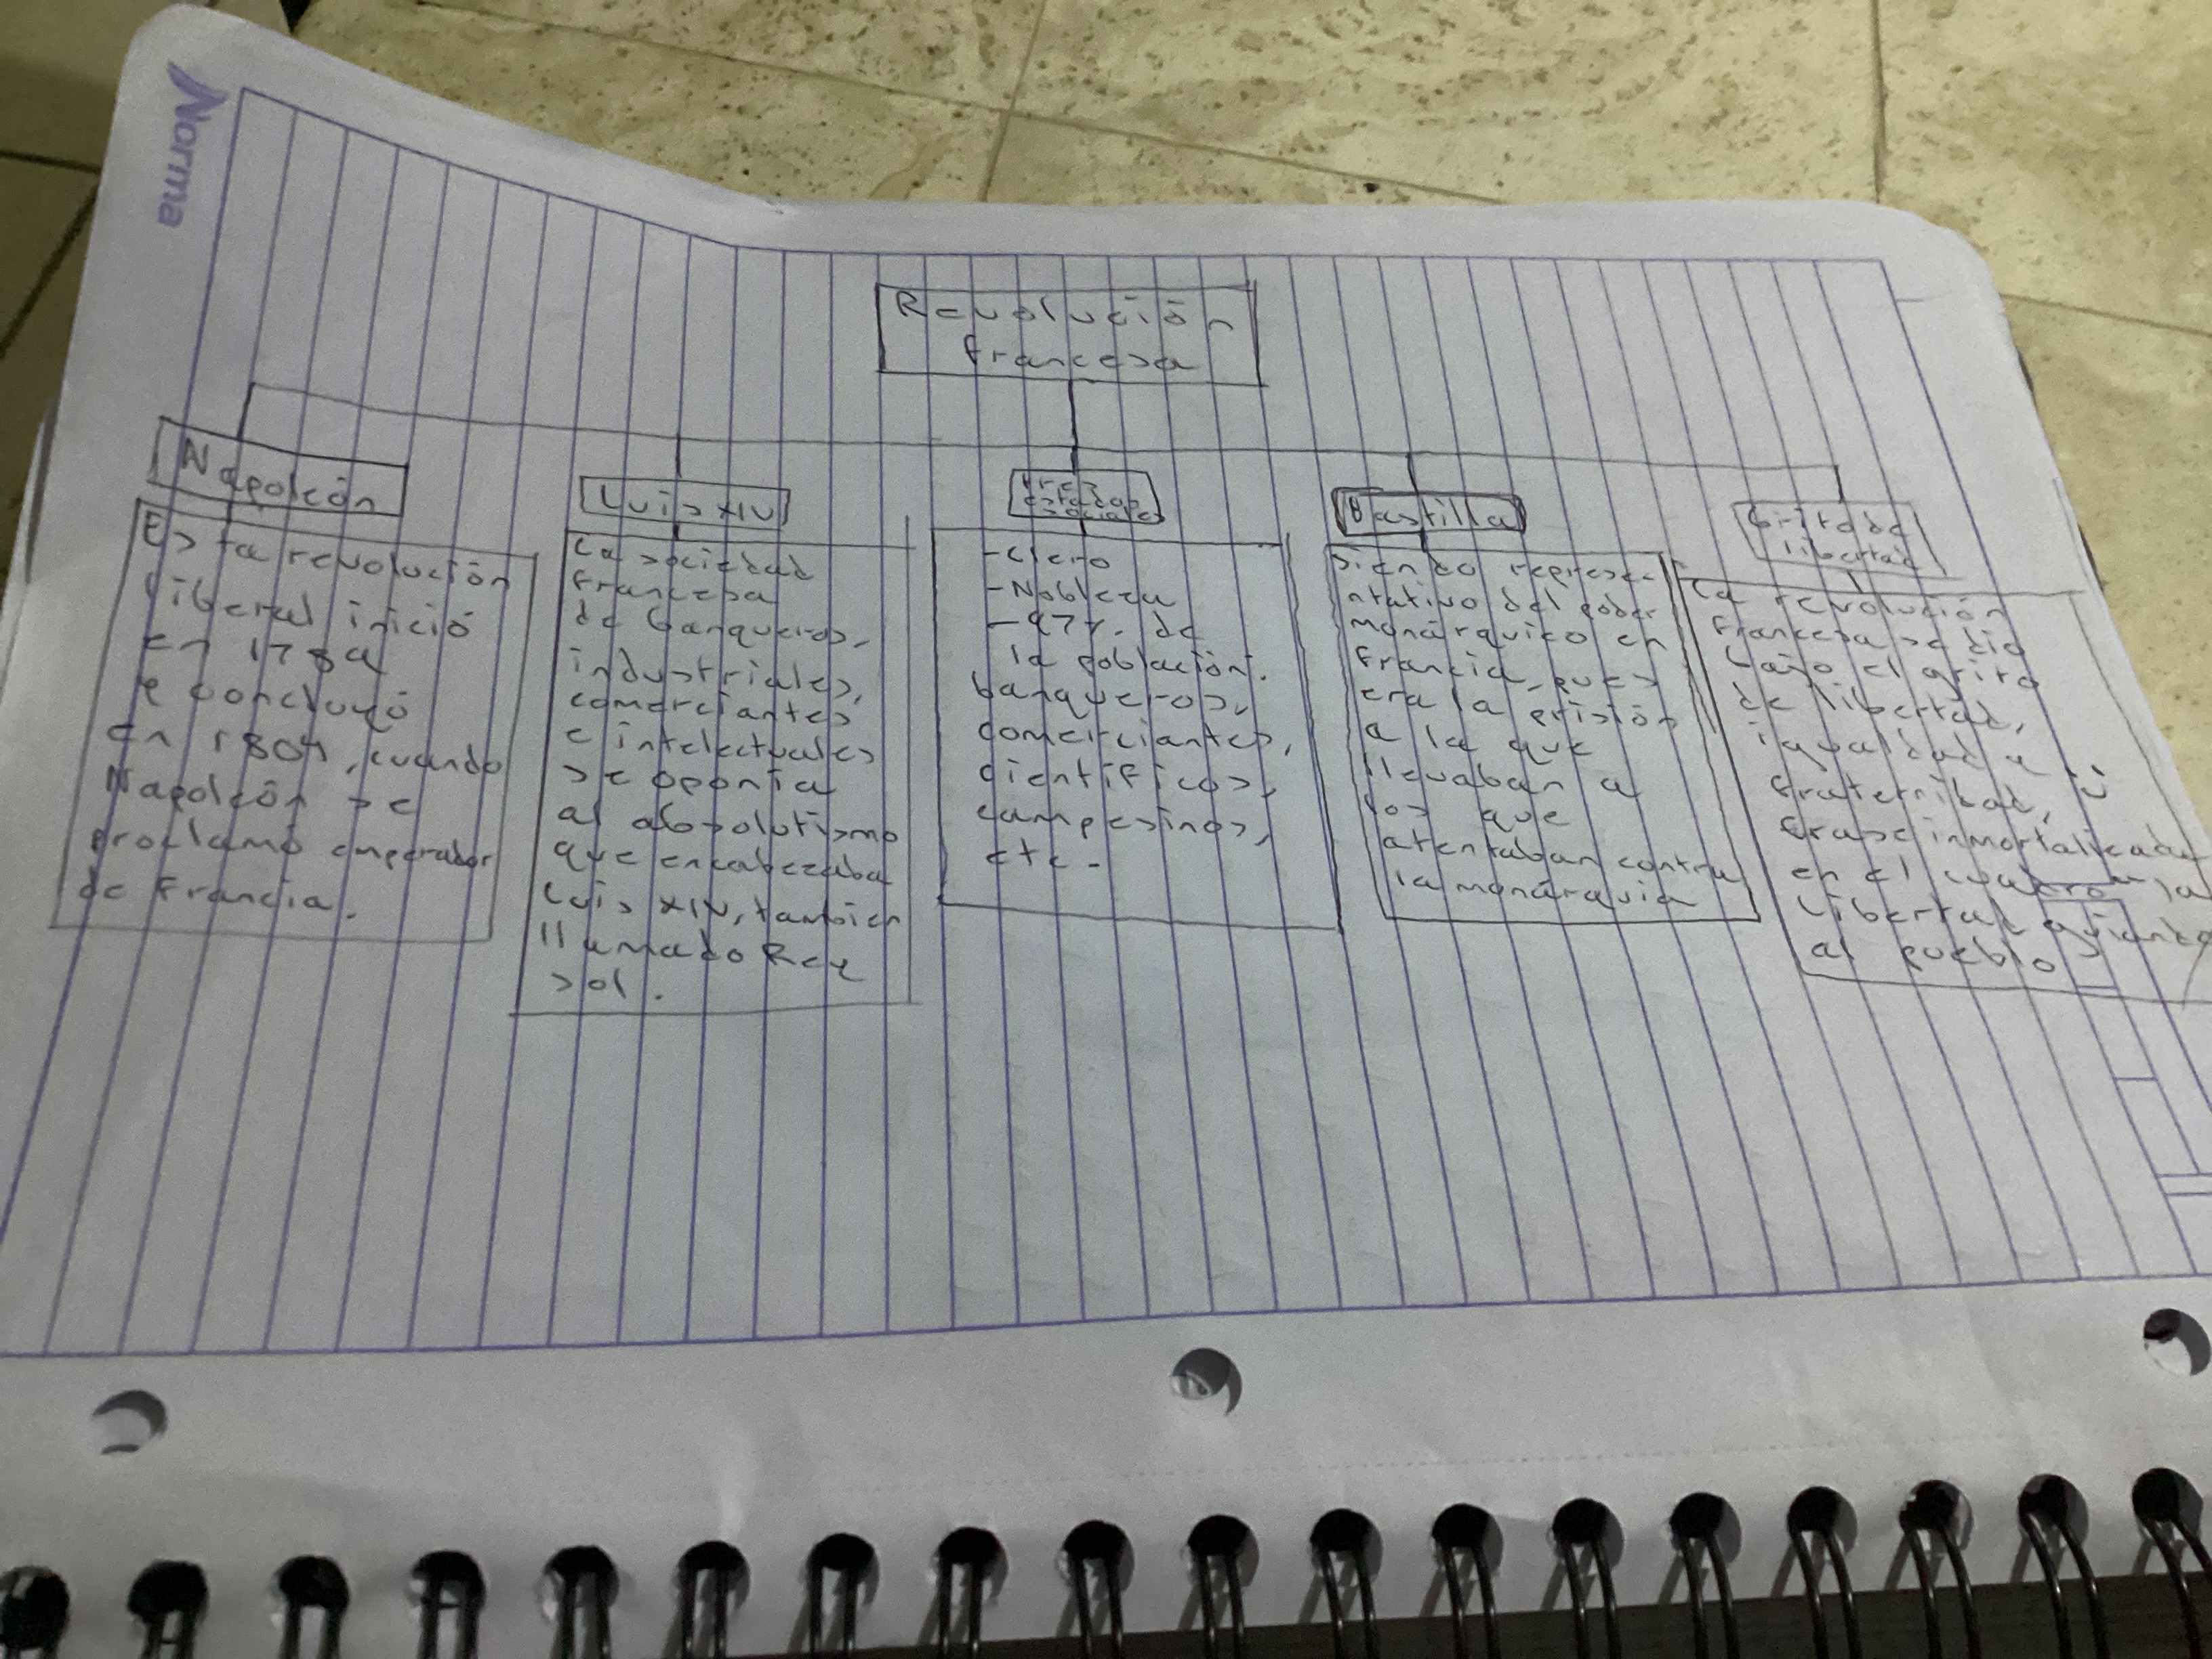 Norma
Revolución
francesa
Napoleón
Esta revolución
liberal inició
en 1789
y concluyó
en 1804, cuando
Napoleón se
proclamó emperador
de Francia.
Luis XIV
La sociedad
francesa
de banqueros,
industriales,
comerciantes
e intelectuales
se oponía
al absolutismo
que encabezaba
Luis XIV, también
llamado Rey
sol.
tres
estados
sociales
-Clero
-Nobleza
-97%. de
la población.
banqueros,
comerciantes,
científicos,
campesinos,
etc.
Bastilla
Siendo represe-
ntativo del poder
monárquico en
Francia, pues
era la prisión
a la que
llevaban a
los que
atentaban contra
la monárquia
Grito de
libertad
La revolución
francesa se dio
bajo el grito
de libertad,
igualdad y
fraternidad,
frase inmortalizada
en el cuadro "la
libertad guiando
al pueblo"